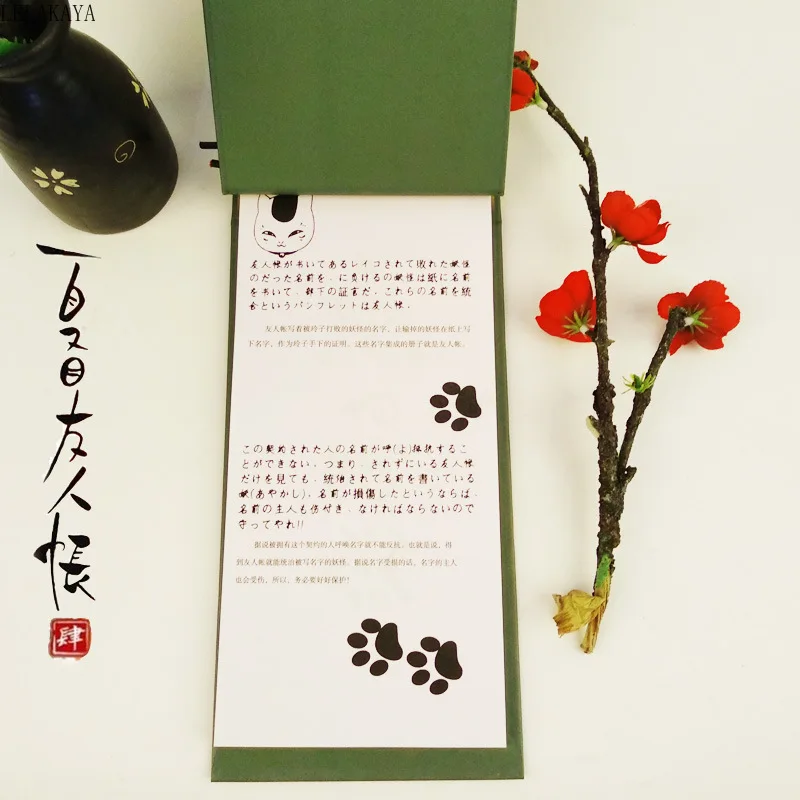 LEELAKAYA
夏目友人帳
肆
友人帳が书いてあるレイコされて敗れた妖怪
のだった名前を、に负けるの妖怪は紙に名前
を书いて、部下の証言だ。これらの名前を統
合というパンフレットは友人帳。
友人帐写着被玲子打败的妖怪的名字。让输掉的妖怪在纸上写
下名字，作为玲子手下的证明。这些名字集成的册子就是友人帐。
この契約された人の名前が呼(よ)抵抗するこ
とができない。つまり、されずにいる友人帳
だけを見ても、統治されて名前を書いている
妖(あやかし)。名前が損傷したというならば、
名前の主人も伤付き、なければならないので
守ってやれ!!
据说被拥有这个契约的人呼唤名字就不能反抗。也就是说，得
到友人帐就能统治被写名字的妖怪。据说名字受损的话，名字的主人
也会受伤，所以，务必要好好保护！